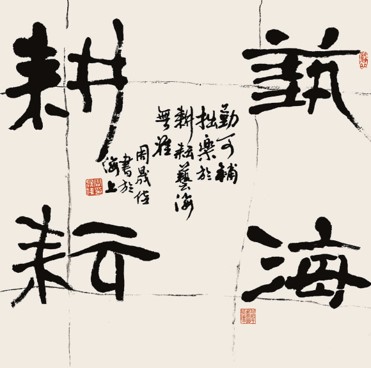 藝海
耕耘
勤可補
拙樂於
耕耘藝海
無涯
周晟
書於
海上